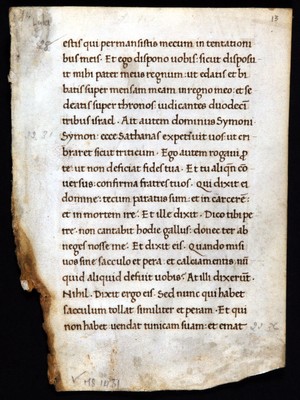 13
28
estis qui permansistis mecum in tentationi
bus meis. Et ego dispono vobis sicut disposu
it mihi pater meus regnum: ut edatis et bi
batis super mensam meam in regno meo: et se
deatis super thronos iudicantes duodecī
tribus israel. Ait autem dominus Symoni.
Symon: ecce Sathanas expetivit vos: ut cri
braret sicut triticum. Ego autem rogavi ꝓ
te: ut non deficiat fides tua. Et tu aliqñ cō
versus: confirma fratres tuos. Qui dixit ei
domine: tecum paratus sum: et in carcerē:
et in mortem ire. Et ille dixit. Dico tibi pe
tre: non cantabit hodie gallus: donec ter ab
neges nosse me. Et dixit eis. Quando misi
vos sine sacculo et pera: et calciamentis: nū
quid aliquid defuit vobis? At illi dixerūt.
Nihil. Dixit ergo eis. Sed nunc qui habet
sacculum tollat similiter et peram. Et qui
non habet vendat tunicam suam: et emat